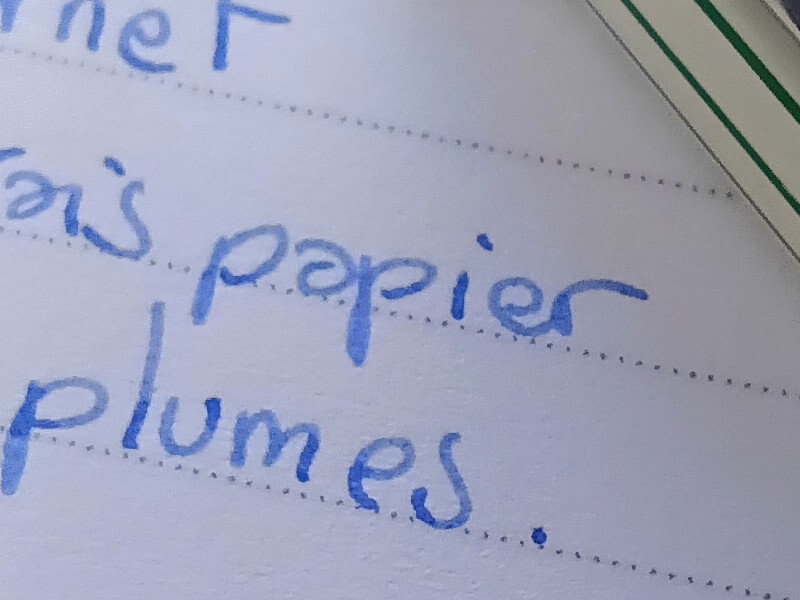 rnet
ais papier
plumes.